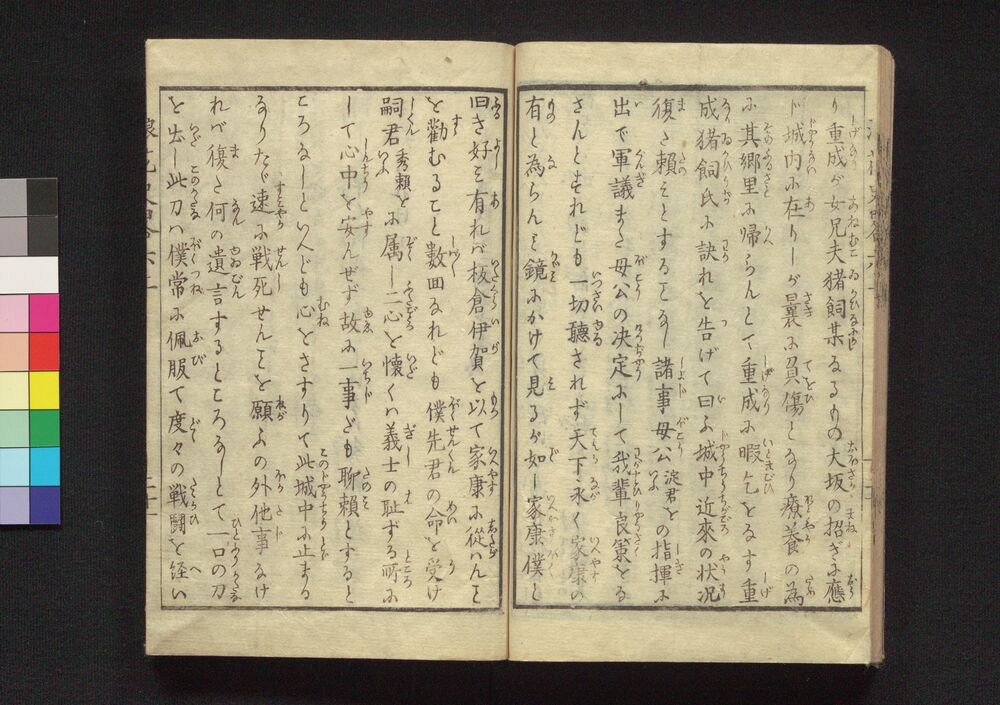 り重成が女兄夫猪飼某なるもの大坂の招ぎに應
じ城内に在りしが曩に負傷となり療養の為
に其郷里に帰らんとて重成に暇乞をなす重
成猪飼氏に訣れを告げて曰ふ城中近來の状况
復た頼みとすることなし諸事母公淀君をの指揮に
出で軍議また母公の决定にして我輩良策をな
さんとすれども一切聽されず天下永く家康の
有と為らんこと鏡にかけて見るが如し家康僕と
旧き好み有れば板倉伊賀を以て家康に從はんこと
を勸むること數回なれども僕先君の命を受け
嗣君秀頼をに属し二心を懐くは義士の恥ずる所に
して心中を安んぜず故に一事ども聊頼とすると
ころなしといへども心ときすりて此城中に止まる
なりたゞ速に戦死せんことを願ふの外他事なけ
れば復た何の遺言するところなしとて一口の刀
を出し此刀は僕常に佩服て度々の戦闘を経い